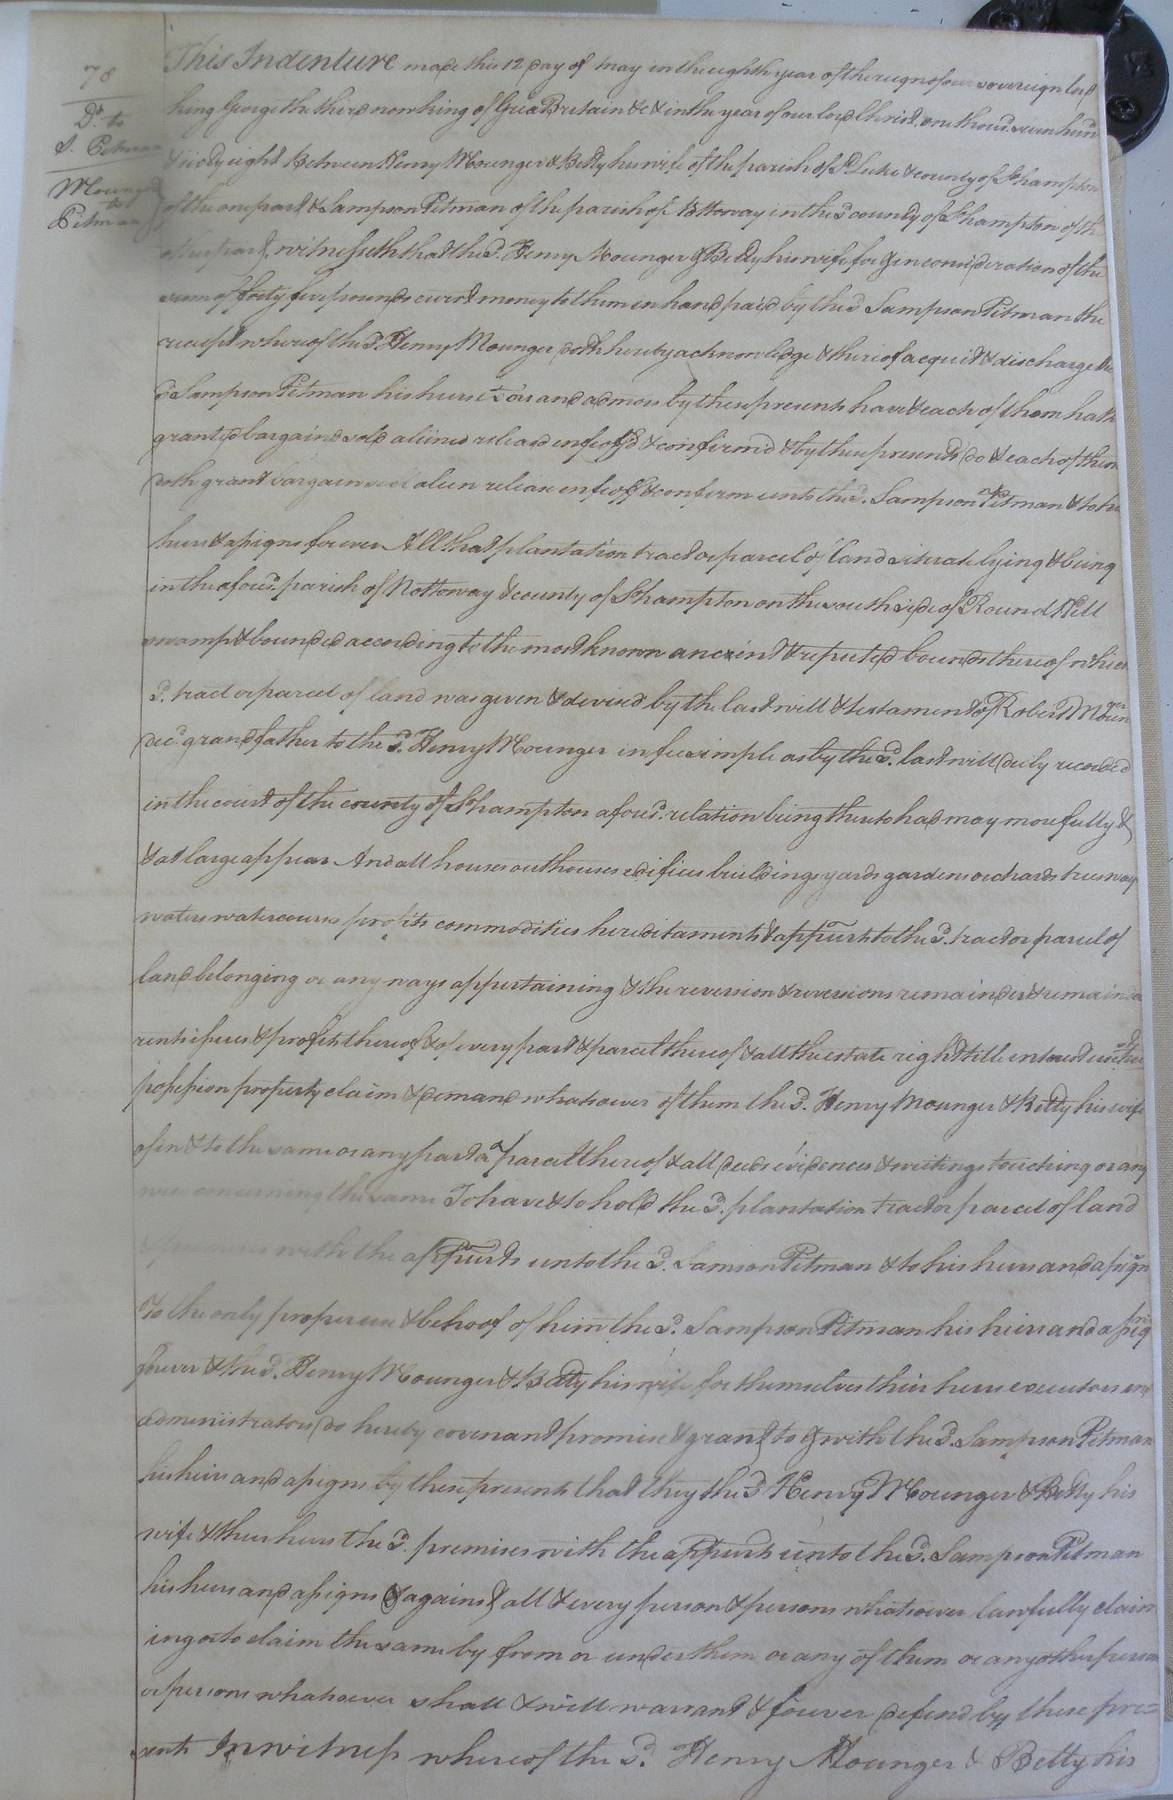 78
Dr. to
S. Pitman
Mounger
to
Pitman
This Indenture made this 12 day of May in the eighth year of the reign of our sovereign lord
king George the third now king of Great Britain &c & in the year of our lord Christ one thousd. seven hund
& sixty eight Between Henry Mounger & Betty his wife of the parish of St. Luke & county of So.hampton
of the one part & Sampson Pitman of the parish of Nottoway in the sd county of So.hampton of th
other part, witnesseth that the sd. Henry Mounger & Betty his wife for & in consideration of the
sum of forty five pounds currt money to them in hand paid by the sd Sampson Pitman the
receipt whereof the sd. Henry Mounger doth hereby acknowledge & thereof acquit & discharge the
sd Sampson Pitman his heirs exors and admors by these presents have & each of them hath
granted bargaind sold aliened releasd enfeoffd & confirmd & by these presents do & each of them
doth grant bargain sell alien release enfeoff & confirm unto the sd. Sampson Pitman & to his
heirs & assigns forever All that plantation tract or parcel of land situate lying & being
in the afores.d parish of Nottoway & county of So.hampton on the south side of Round Hill
swamp & bounded according to the most known ancient & reputed bounds thereof which
sd. tract or parcel of land was given & devised by the last will & testament of Robert Mounger
decd grandfather to the sd. Henry Mounger in fee simple as by the sd. last will duly recorded
in the court of the county of So.hampton afores.d relation being thereto had may more fully &
& at large appear And all houses outhouses edifices buildings yards gardens orchards trees ways
waters watercourses profits commodities hereditaments & appurts to the sd. tract or parcel of
land belonging or any ways appertaining & the reversion & reversions remainder & remainders
rents issues & profits thereof & of every part & parcel thereof & all the estate right title interest use
possession property claim & demand whatsoever of them the sd. Henry Mounger & Betty his wife
of in & to the same or any part or parcel thereof & all deeds evidences & writings touching or any
wise concerning the same To have & to hold the sd. plantation tract or parcel of land
& premises with the appurts unto the sd. Samson Pitman & to his heirs and assigns
To the only proper use & behoof of him the sd. Sampson Pitman his heirs and assigns
forever & the sd. Henry Mounger & Betty his wife for themselves their heirs executors and
administrators do hereby covenant promise & grant to & with the sd. Sampson Pitman
his heirs and assigns by these presents that they the sd Henry Mounger & Betty his
wife & their heirs the sd. premises with the appurts unto the sd. Sampson Pitman
his heirs and assigns & against all & every person & persons whatsoever lawfully claim
ing or to claim the same by from or under them or any of them or any other person
or persons whatsoever shall & will warrant & forever defend by these pre=
sents In witness whereof the sd. Henry Mounger & Betty his